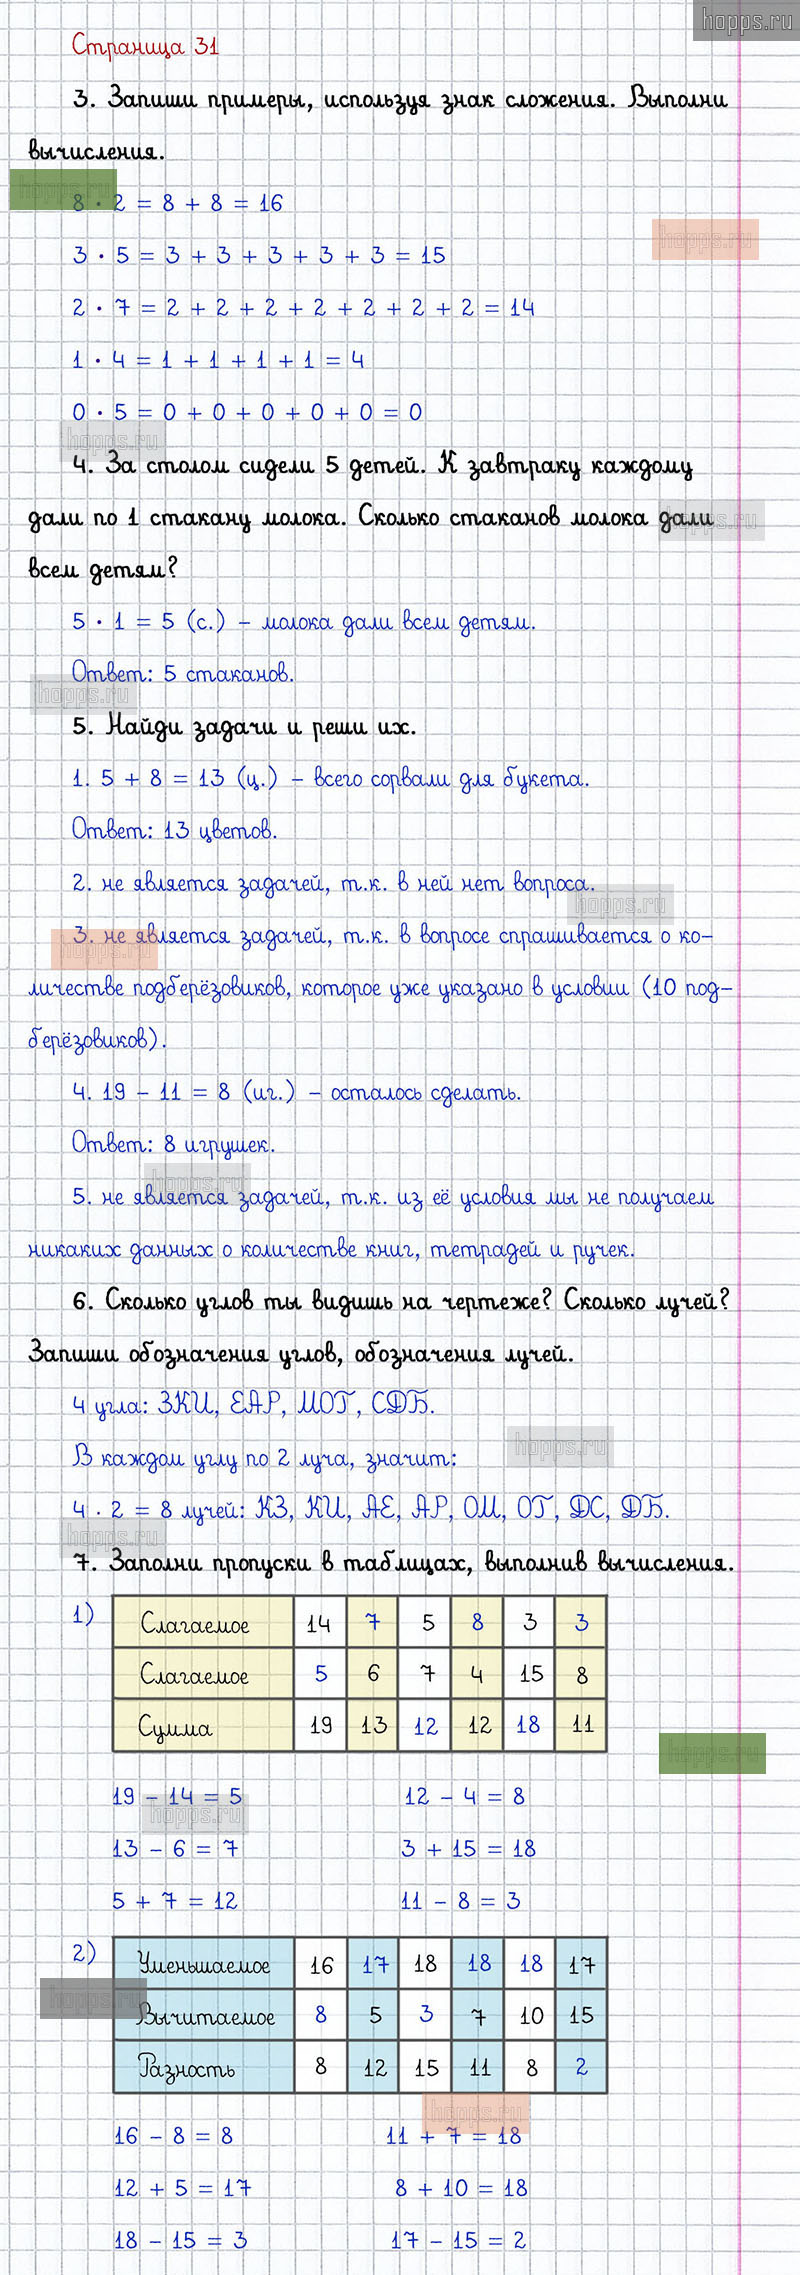 hopps.ru
Страница 31
3. Запиши примеры, используя знак сложения. Выполни
вычисления.
hopps.ru
8 · 2 = 8 + 8 = 16
hopps.ru
3 · 5 = 3 + 3 + 3 + 3 + 3 = 15
2 · 7 = 2 + 2 + 2 + 2 + 2 + 2 + 2 = 14
1 · 4 = 1 + 1 + 1 + 1 = 4
0 · 5 = 0 + 0 + 0 + 0 + 0 = 0
hopps.ru
4. За столом сидели 5 детей. К завтраку каждому
дали по 1 стакану молока. Сколько стаканов молока дали
hopps.ru
всем детям?
5 · 1 = 5 (с.) – молока дали всем детям.
Ответ: 5 стаканов.
hopps.ru
5. Найди задачи и реши их.
1. 5 + 8 = 13 (ц.) – всего сорвали для букета.
Ответ: 13 цветов.
2. не является задачей, т.к. в ней нет вопроса.
hopps.ru
3. не является задачей, т.к. в вопросе спрашивается о ко-
hopps.ru
личестве подберёзовиков, которое уже указано в условии (10 под-
берёзовиков).
4. 19 – 11 = 8 (иг.) – осталось сделать.
Ответ: 8 игрушек.
hopps.ru
5. не является задачей, т.к. из её условия мы не получаем
никаких данных о количестве книг, тетрадей и ручек.
6. Сколько углов ты видишь на чертеже? Сколько лучей?
Запиши обозначения углов, обозначения лучей.
4 угла: ЗКИ, ЕАР, МОТ, СДБ.
hopps.ru
В каждом углу по 2 луча, значит:
4 · 2 = 8 лучей: КЗ, КИ, АЕ, АР, ОМ, ОТ, ДС, ДБ.
hopps.ru
7. Заполни пропуски в таблицах, выполнив вычисления.
1) Слагаемое 14 7 5 8 3 3
Слагаемое 5 6 7 4 15 8
Сумма 19 13 12 12 18 11
hopps.ru
19 – 14 = 5 12 – 4 = 8
hopps.ru
13 – 6 = 7 3 + 15 = 18
5 + 7 = 12 11 – 8 = 3
2) Уменьшаемое 16 17 18 18 18 17
hopps.ru
Вычитаемое 8 5 3 7 10 15
Разность 8 12 15 11 8 2
hopps.ru
16 – 8 = 8 11 + 7 = 18
12 + 5 = 17 8 + 10 = 18
18 – 15 = 3 17 – 15 = 2